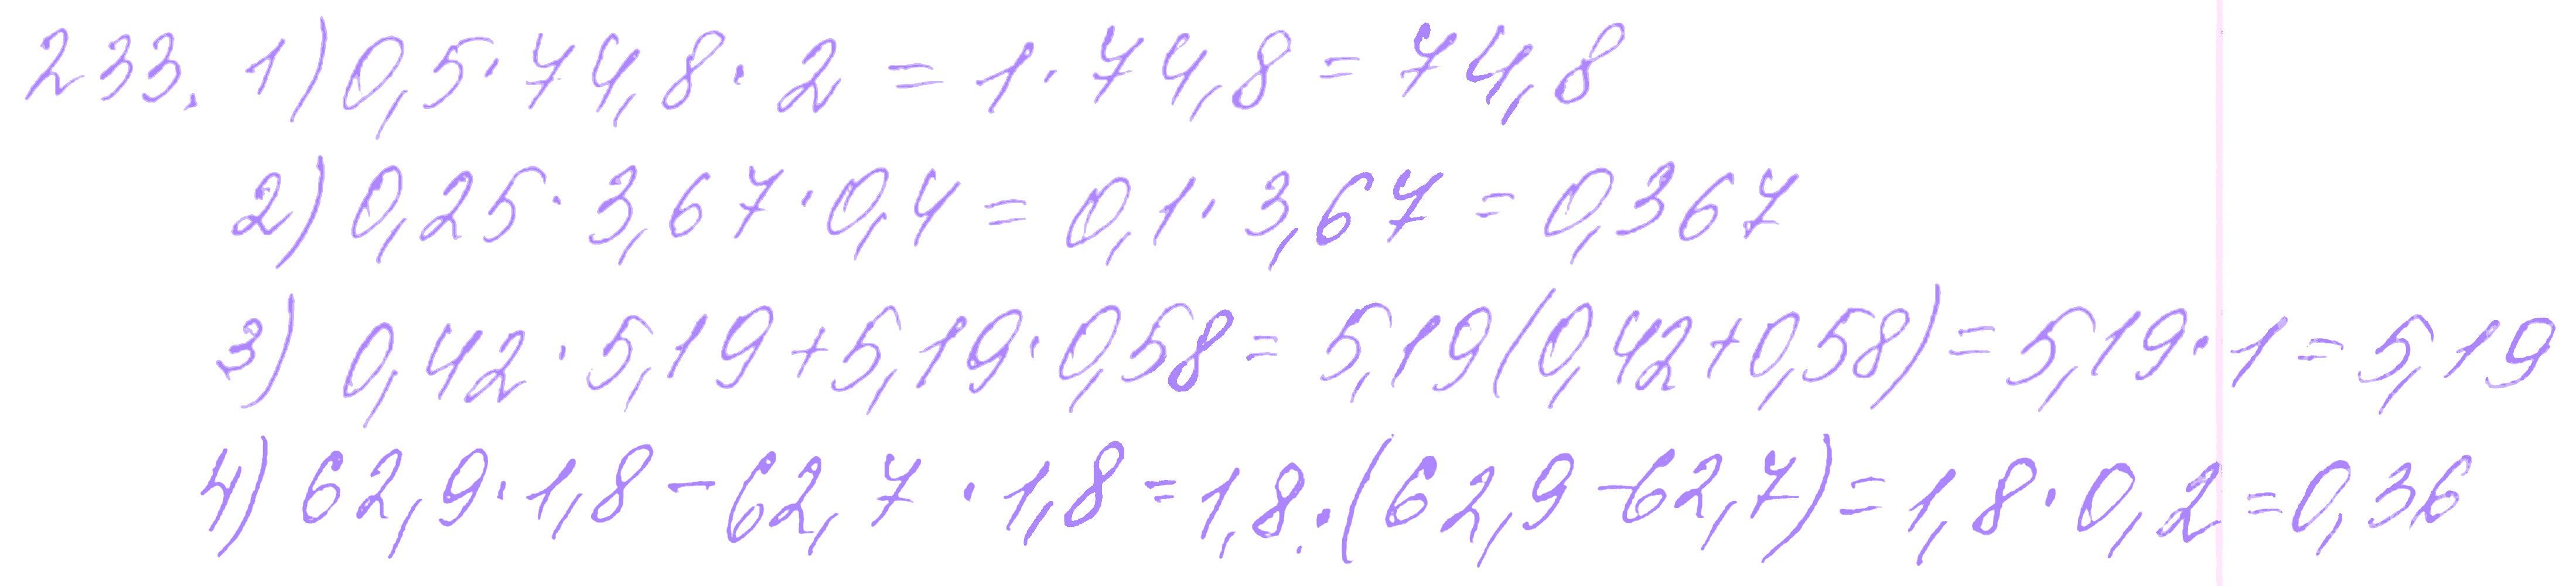 233. 1) 0,5 · 74,8 · 2 = 1 · 74,8 = 74,8
2) 0,25 · 3,67 · 0,4 = 0,1 · 3,67 = 0,367
3) 0,42 · 5,19 + 5,19 · 0,58 = 5,19 (0,42 + 0,58) = 5,19 · 1 = 5,19
4) 62,9 · 1,8 - 62,7 · 1,8 = 1,8 · (62,9 - 62,7) = 1,8 · 0,2 = 0,36